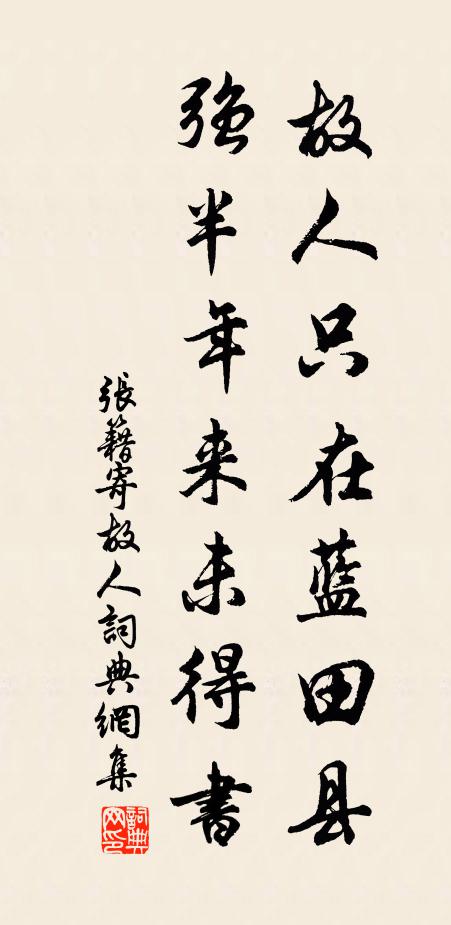 故人只在蓝田县
强半年来未得書
張籍寄故人詞典網集
詞典网印